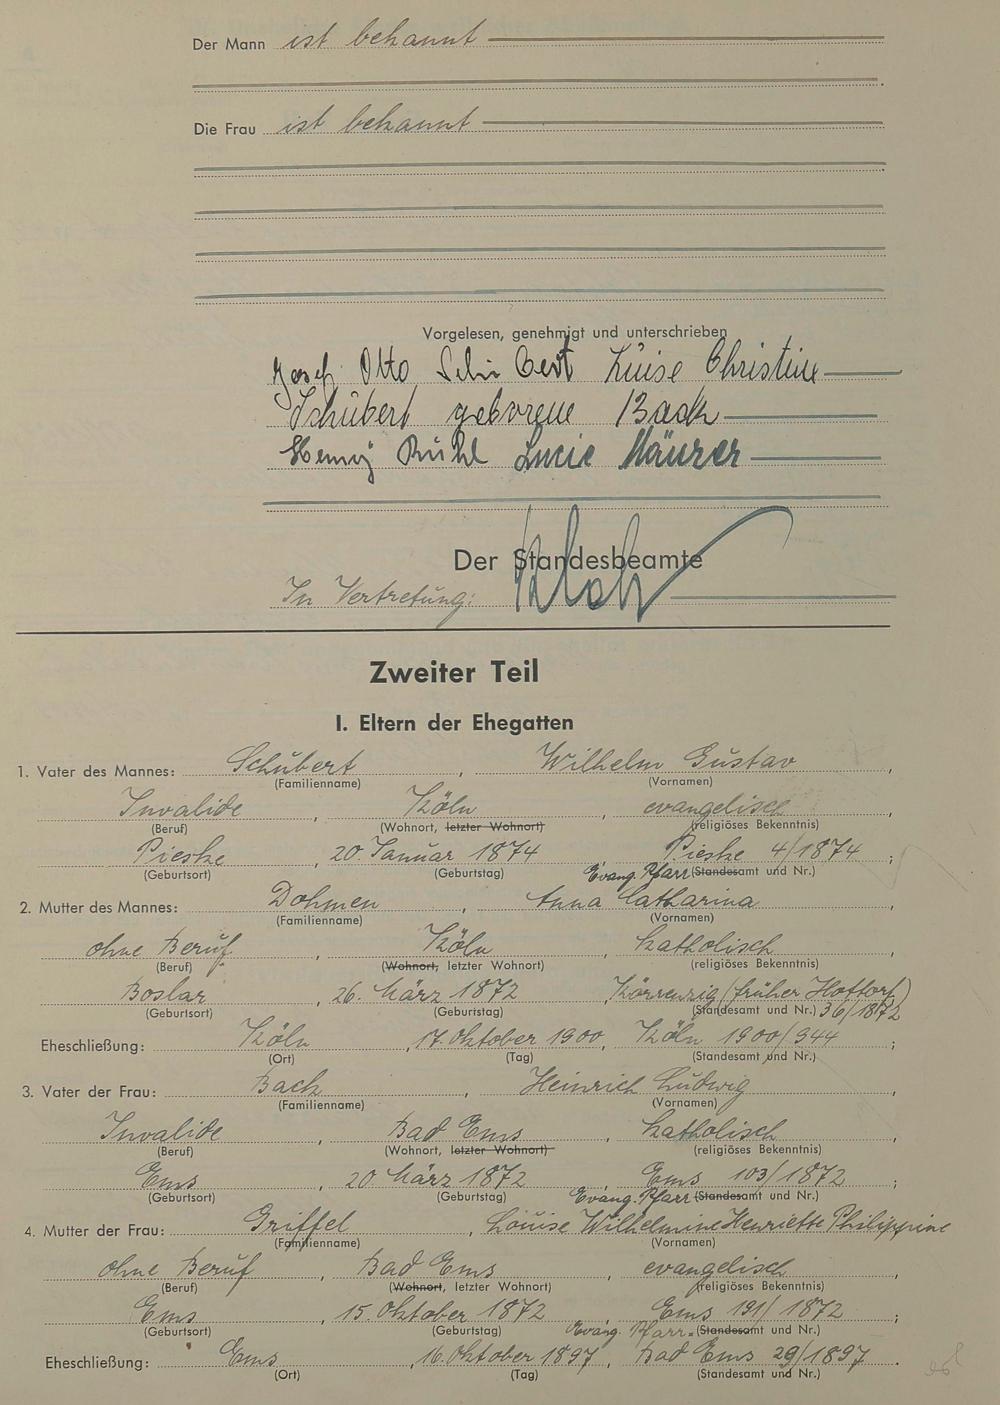 Der Mann ist bekannt
Die Frau ist bekannt
Vorgelesen, genehmigt und unterschrieben
Josef Otto Schubert Luise Christine
Schubert geborene Back
Henny Rühl Lucie Mäurer
Der Standesbeamte
In Vertretung:
Zweiter Teil
I. Eltern der Ehegatten
1. Vater des Mannes: Schubert, Wilhelm Gustav,
(Familienname) (Vornamen)
Invalide, Köln, evangelisch
(Beruf) (Wohnort, letzter Wohnort) (religiöses Bekenntnis)
Pieske, 20. Januar 1874 Pieske 4/1874;
(Geburtsort) (Geburtstag) Evang. Pfarr (Standesamt und Nr.)
2. Mutter des Mannes: Dohmen, Anna Catharina,
(Familienname) (Vornamen)
ohne Beruf, Köln, katholisch,
(Beruf) (Wohnort, letzter Wohnort) (religiöses Bekenntnis)
Boslar, 26. März 1872 Körrenzig (früher Hottorf)
(Geburtsort) (Geburtstag) (Standesamt und Nr.) 36/1872
Eheschließung: Köln, 17. Oktober 1900, Köln 1900/944;
(Ort) (Tag) (Standesamt und Nr.)
3. Vater der Frau: Bach, Heinrich Ludwig,
(Familienname) (Vornamen)
Invalide, Bad Ems, katholisch,
(Beruf) (Wohnort, letzter Wohnort) (religiöses Bekenntnis)
Ems, 20. März 1872, Ems 103/1872;
(Geburtsort) (Geburtstag) Evang. Pfarr (Standesamt und Nr.)
4. Mutter der Frau: Griffel, Louise Wilhelmine Henriette Philippine
(Familienname) (Vornamen)
ohne Beruf, Bad Ems, evangelisch,
(Beruf) (Wohnort, letzter Wohnort) (religiöses Bekenntnis)
Ems, 15. Oktober 1872 Ems 191/1872;
(Geburtsort) (Geburtstag) Evang. Pfarr- (Standesamt und Nr.)
Eheschließung: Ems, 16. Oktober 1897, Bad Ems 29/1897.
(Ort) (Tag) (Standesamt und Nr.)